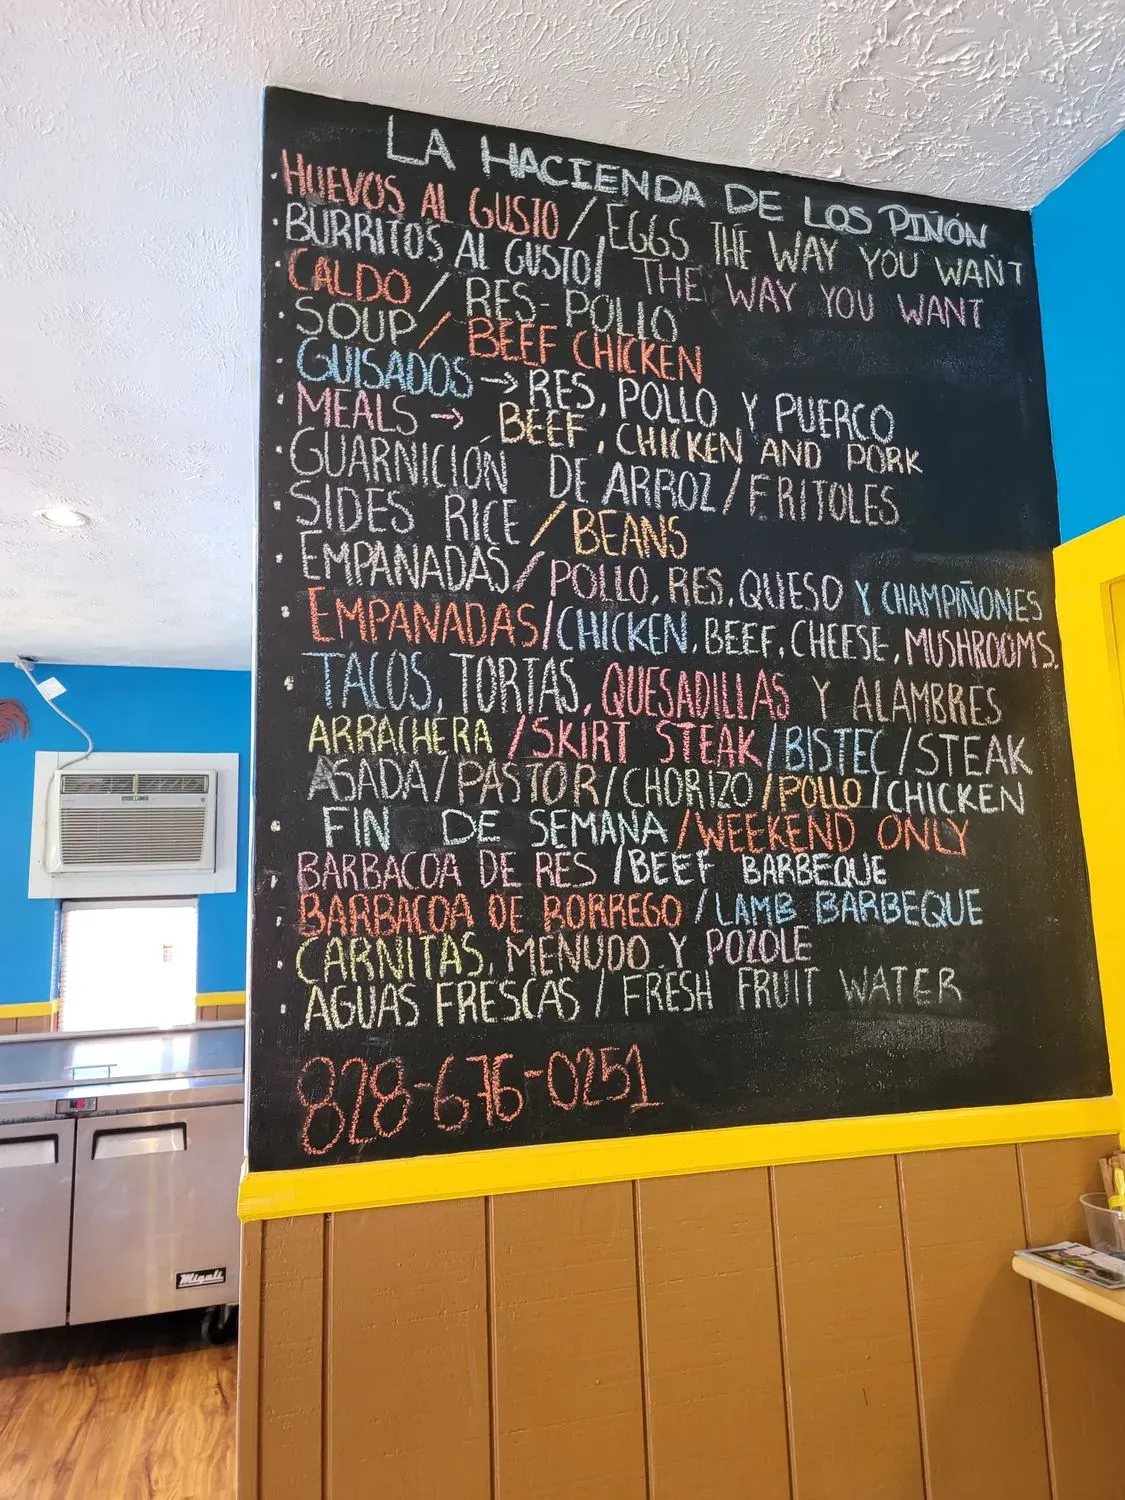 LA HACIENDA DE LOS PIÑÓN
· HUEVOS AL GUSTO / EGGS THE WAY YOU WANT
· BURRITOS AL GUSTO/ THE WAY YOU WANT
· CALDO / RES-POLLO
· SOUP / BEEF CHICKEN
· GUISADOS → RES, POLLO Y PUERCO
· MEALS → BEEF, CHICKEN AND PORK
· GUARNICIÓN DE ARROZ / FRITOLES
· SIDES RICE / BEANS
· EMPANADAS / POLLO, RES, QUESO Y CHAMPIÑONES
· EMPANADAS / CHICKEN, BEEF, CHEESE, MUSHROOMS.
· TACOS, TORTAS, QUESADILLAS Y ALAMBRES
ARRACHERA / SKIRT STEAK / BISTEC / STEAK
ASADA / PASTOR / CHORIZO / POLLO / CHICKEN
· FIN DE SEMANA / WEEKEND ONLY
· BARBACOA DE RES / BEEF BARBEQUE
· BARBACOA DE BORREGO / LAMB BARBEQUE
· CARNITAS, MENUDO Y POZOLE
· AGUAS FRESCAS / FRESH FRUIT WATER
828-676-0251
Migali